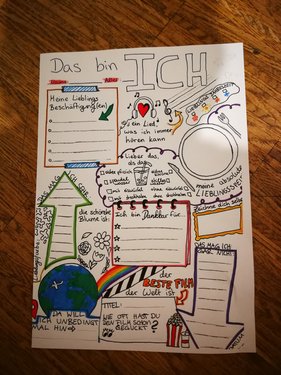 Das bin ICH
Name:
Alter:
Meine Lieblings
Beschäftigung(en)
ein Lied,
was ich immer
hören kann
Lieber das,
als das
meine absolute
LIEBLINGSSPEISE
die schönste
Blume ist:
Ich bin Dankbar für...
Zeichne dich selbst
DAS MAG ICH
GAR NICHT
DAS MAG ICH
der
BESTE FILM
der Welt ist
DA WILL
ICH UNBEDINGT
MAL HIN
TITEL:
WIE OFT HAST DU
DEN FILM SCHON
GEGUCKT?